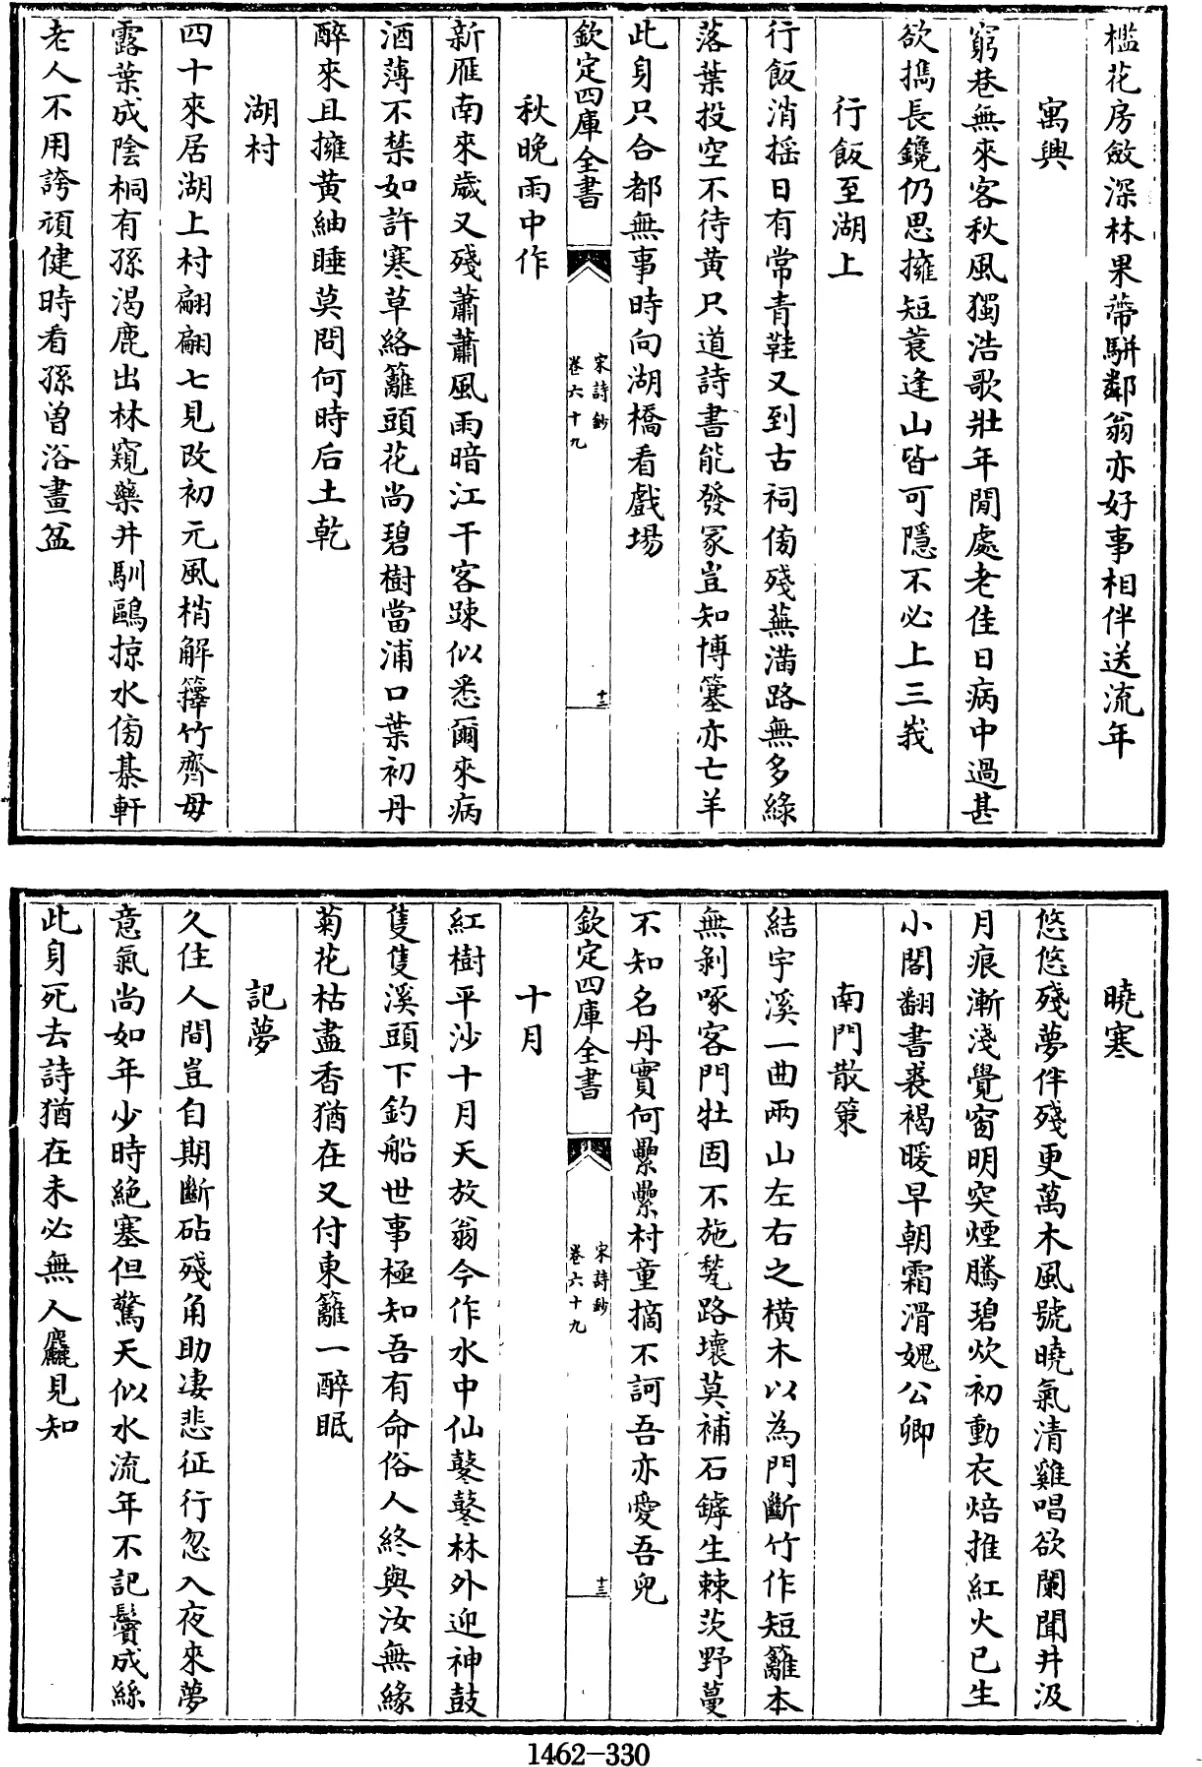 檻花房斂深林果蔕駢鄰翁亦好事相伴送流年
寓興
窮巷無來客秋風獨浩歌壯年閒處老佳日病中過甚
欲擕長鑱仍思擁短蓑逢山皆可隱不必上三峩
行飯至湖上
行飯消揺日有常青鞋又到古祠傍殘蕪滿路無多綠
落葉投空不待黄只道詩書能發冢豈知博簺亦亡羊
此身只合都無事時向湖橋看戲場
欽定四庫全書
宋詩鈔
卷六十九
十二
秋晚雨中作
新雁南來歲又殘蕭蕭風雨暗江干客踈似悉爾來病
酒薄不禁如許寒草絡籬頭花尚碧樹當浦口葉初丹
醉來且擁黄紬睡莫問何時后土乾
湖村
四十來居湖上村翩翩七見改初元風梢解籜竹齊母
露葉成陰桐有孫渴鹿出林窺藥井馴鷗掠水傍棊軒
老人不用誇頑健時看孫曽浴畫盆
曉寒
悠悠殘夢伴殘更萬木風號曉氣清雞唱欲闌聞井汲
月痕漸淺覺窗明突煙騰碧炊初動衣焙推紅火已生
小閤翻書裘褐暖早朝霜滑媿公卿
南門散策
結宇溪一曲兩山左右之横木以為門斷竹作短籬本
無剝啄客門牡固不施甃路壞莫補石罅生棘茨野蔓
不知名丹實何纍纍村童摘不訶吾亦愛吾兒
欽定四庫全書
宋詩鈔
卷六十九
十三
十月
紅樹平沙十月天放翁今作水中仙鼕鼕林外迎神鼓
隻隻溪頭下釣船世事極知吾有命俗人終與汝無緣
菊花枯盡香猶在又付東籬一醉眠
記夢
久住人間豈自期斷砧殘角助凄悲征行忽入夜來夢
意氣尚如年少時絶塞但驚天似水流年不記鬢成絲
此身死去詩猶在未必無人麤見知
1462-330